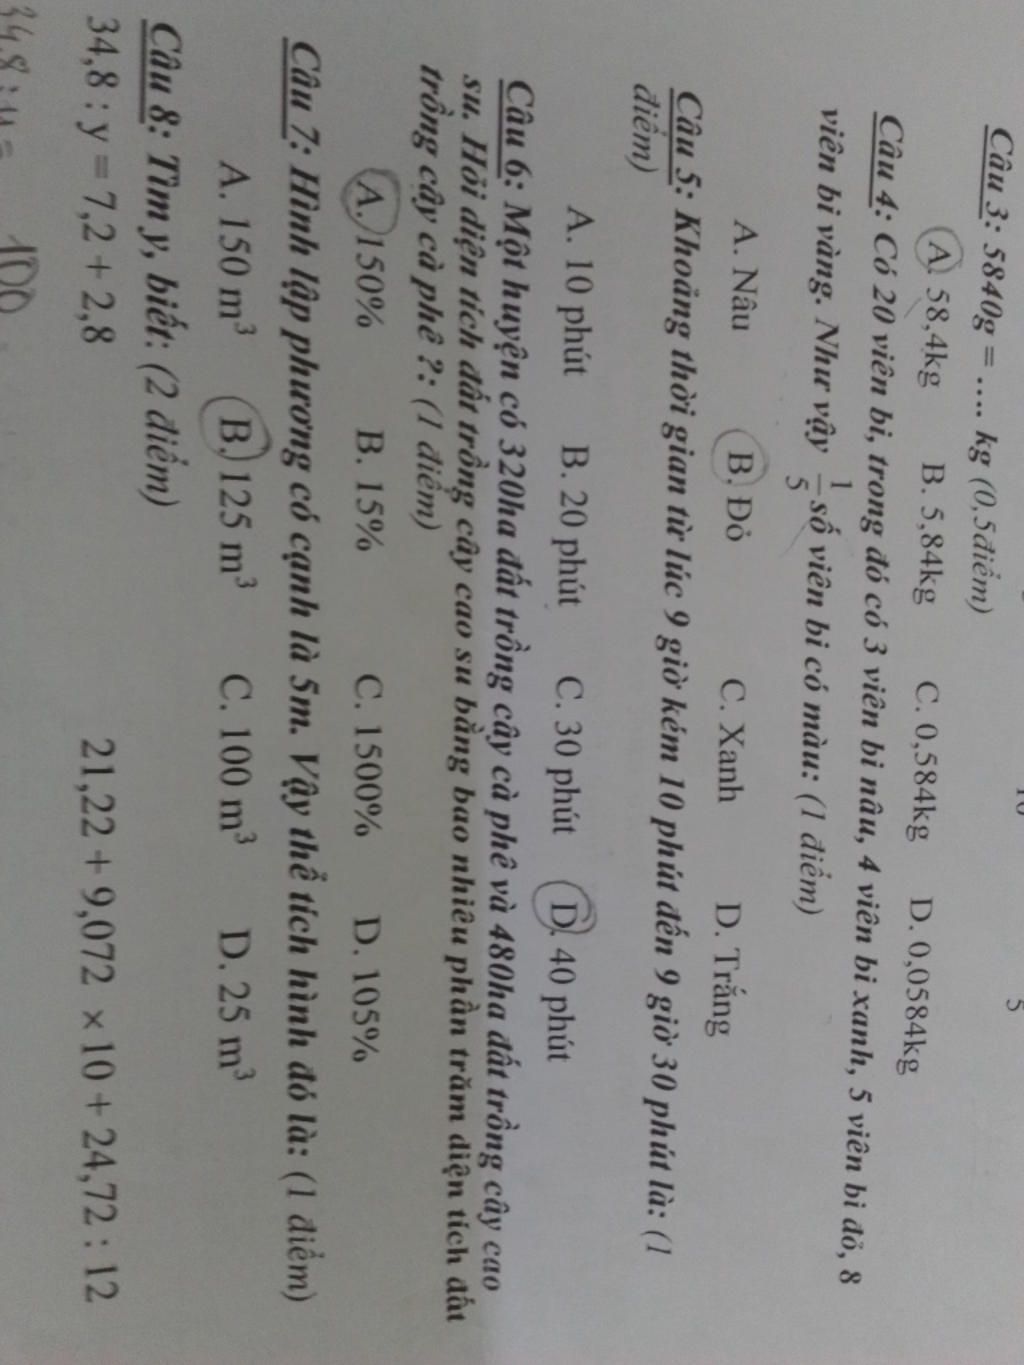 Câu 3: 5840g = .... kg (0,5điểm)
A. 58,4kg B. 5,84kg C. 0,584kg D. 0,0584kg
Câu 4: Có 20 viên bi, trong đó có 3 viên bi nâu, 4 viên bi xanh, 5 viên bi đỏ, 8
viên bi vàng. Như vậy 1/5 số viên bi có màu: (1 điểm)
A. Nâu B. Đỏ C. Xanh D. Trắng
Câu 5: Khoảng thời gian từ lúc 9 giờ kém 10 phút đến 9 giờ 30 phút là: (1
điểm)
A. 10 phút B. 20 phút C. 30 phút D. 40 phút
Câu 6: Một huyện có 320ha đất trồng cây cà phê và 480ha đất trồng cây cao
su. Hỏi diện tích đất trồng cây cao su bằng bao nhiêu phần trăm diện tích đất
trồng cây cà phê ?: (1 điểm)
A. 150% B. 15% C. 1500% D. 105%
Câu 7: Hình lập phương có cạnh là 5m. Vậy thể tích hình đó là: (1 điểm)
A. 150 m³ B. 125 m³ C. 100 m³ D. 25 m³
Câu 8: Tìm y, biết: (2 điểm)
34,8 : y = 7,2 + 2,8 21,22 + 9,072 × 10 + 24,72 : 12